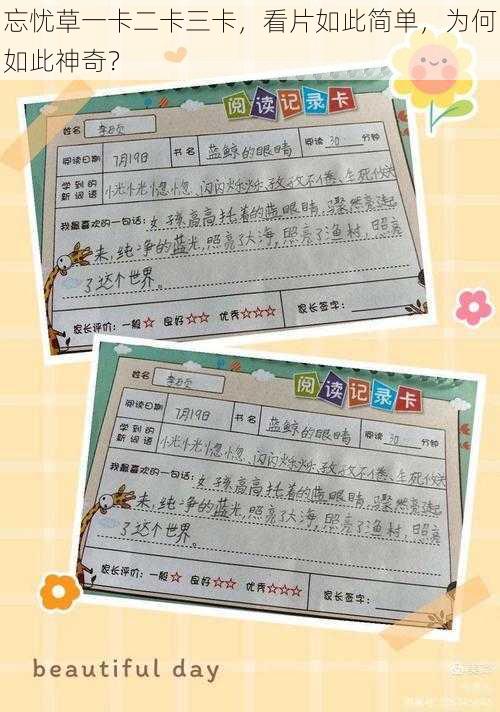 忘忧草一卡二卡三卡，看片如此简单，为何
如此神奇？
阅读记录卡
姓名
阅读日期 7月19日 书名 蓝鲸的眼睛 阅读 30 分钟
学到的
新词语
恍恍惚惚、闪闪烁烁、孜孜不倦、生死攸关
我最喜欢的一句话：女孩高高托着的蓝眼睛，骤然亮起
来，纯净的蓝光，照亮了大海，照亮了渔村，照亮
了这个世界。
家长评价：一般☆ 良好☆☆ 优秀☆☆☆ 家长签字：
姓名
阅读记录卡
阅读日期 7月19日 书名 蓝鲸的眼睛 阅读 30 分钟
学到的
新词语
恍恍惚惚、闪闪烁烁、孜孜不倦、生死攸关
我最喜欢的一句话：女孩高高托着的蓝眼睛，骤然亮起
来，纯净的蓝光，照亮了大海，照亮了渔村，照亮
了这个世界。
家长评价：一般☆ 良好☆☆ 优秀☆☆☆ 家长签字：
beautiful day